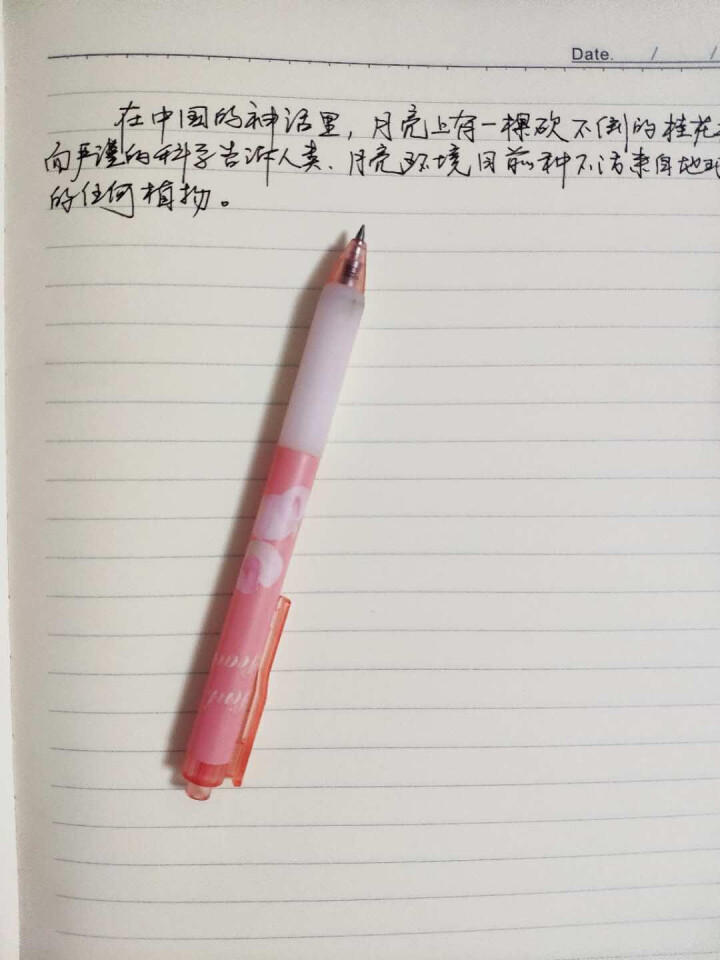 Date. / /
在中国的神话里，月亮上有一棵砍不倒的桂花
而严谨的科学告诉人类、月亮环境目前种不活来自地球
的任何植物。